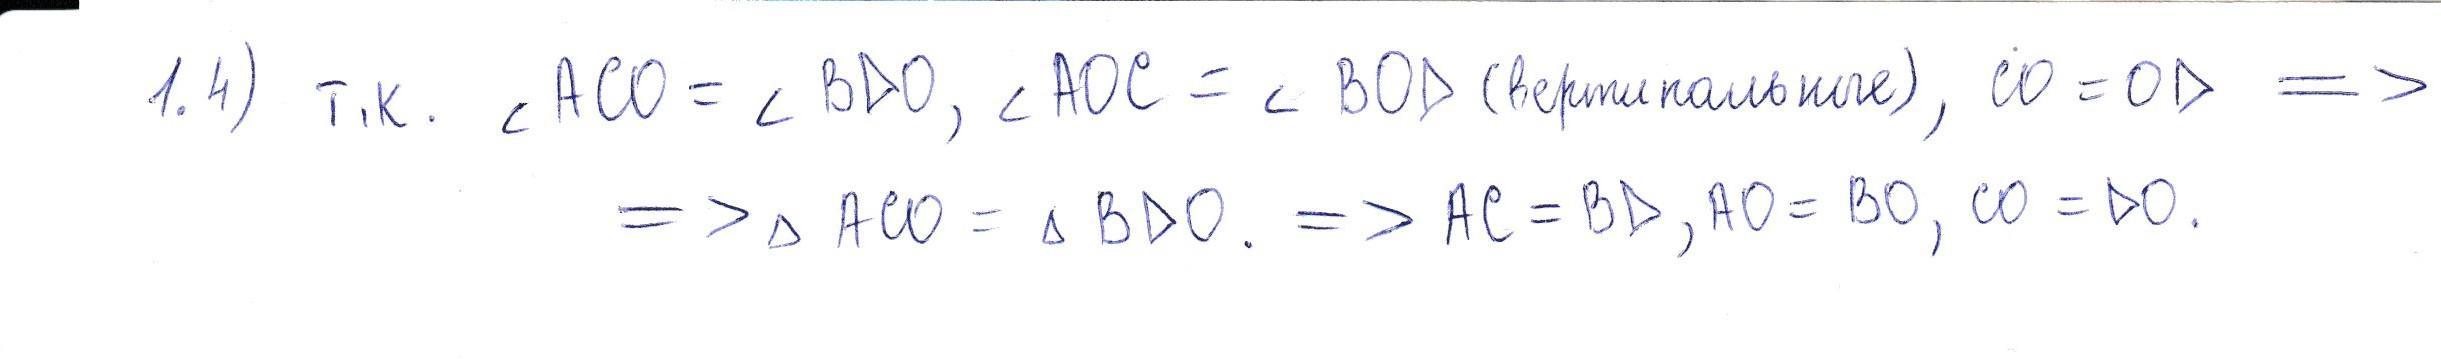 1.4) т.к. ∠ACO = ∠BDO, ∠AOC = ∠BOD (вертикальные), CO = OD =>
=> △ACO = △BDO. => AC = BD, AO = BO, CO = DO.